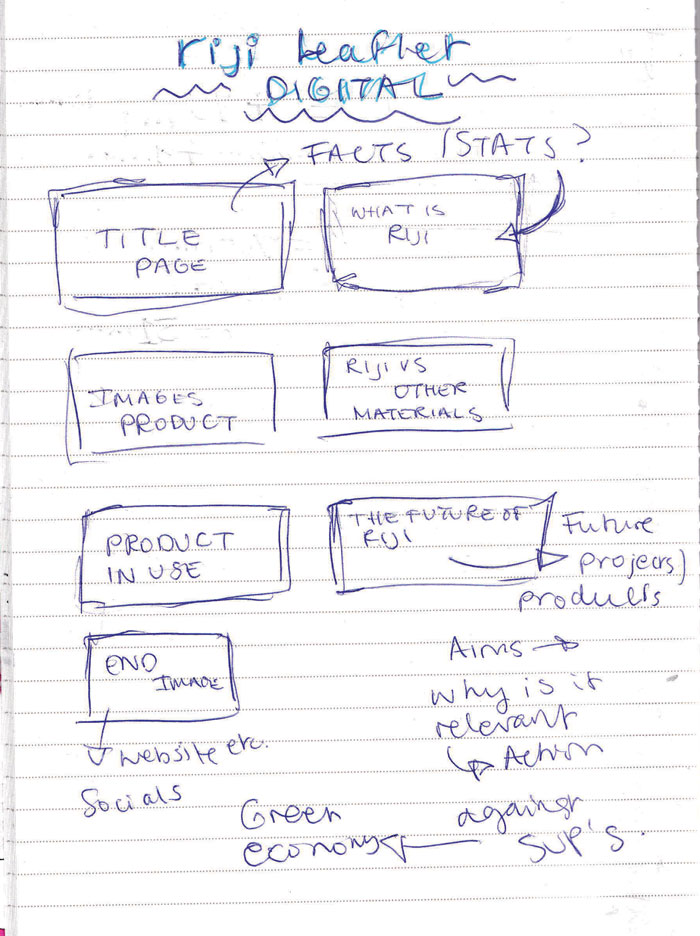 riji leaflet
DIGITAL
FACTS / STATS ?
TITLE
PAGE
WHAT IS
RIJI
IMAGES
PRODUCT
RIJI VS
OTHER
MATERIALS
PRODUCT
IN USE
THE FUTURE OF
RIJI
Future
projects/
products
END
IMAGE
website etc.
Socials
Aims →
why is it
relevant
↳ Action
against
SUP'S.
Green
economy